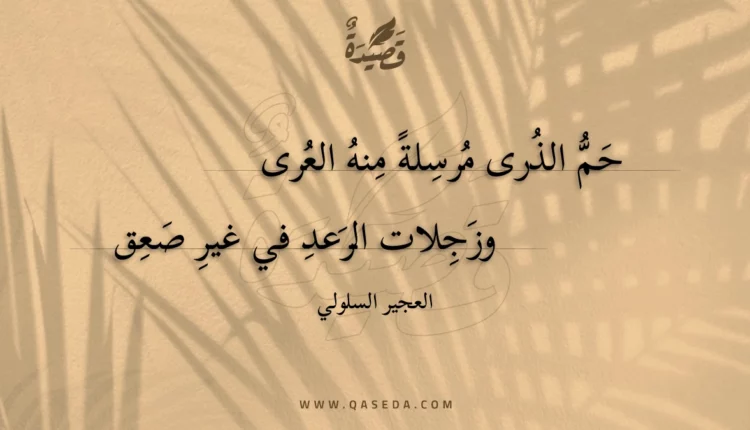 قَصِيْدَةٌ
حَمُّ الذُرى مُرسِلةً مِنهُ العُرى
وزَجِلات الرَعدِ في غيرِ صَعِق
العجير السلولي
WWW.QASEDA.COM